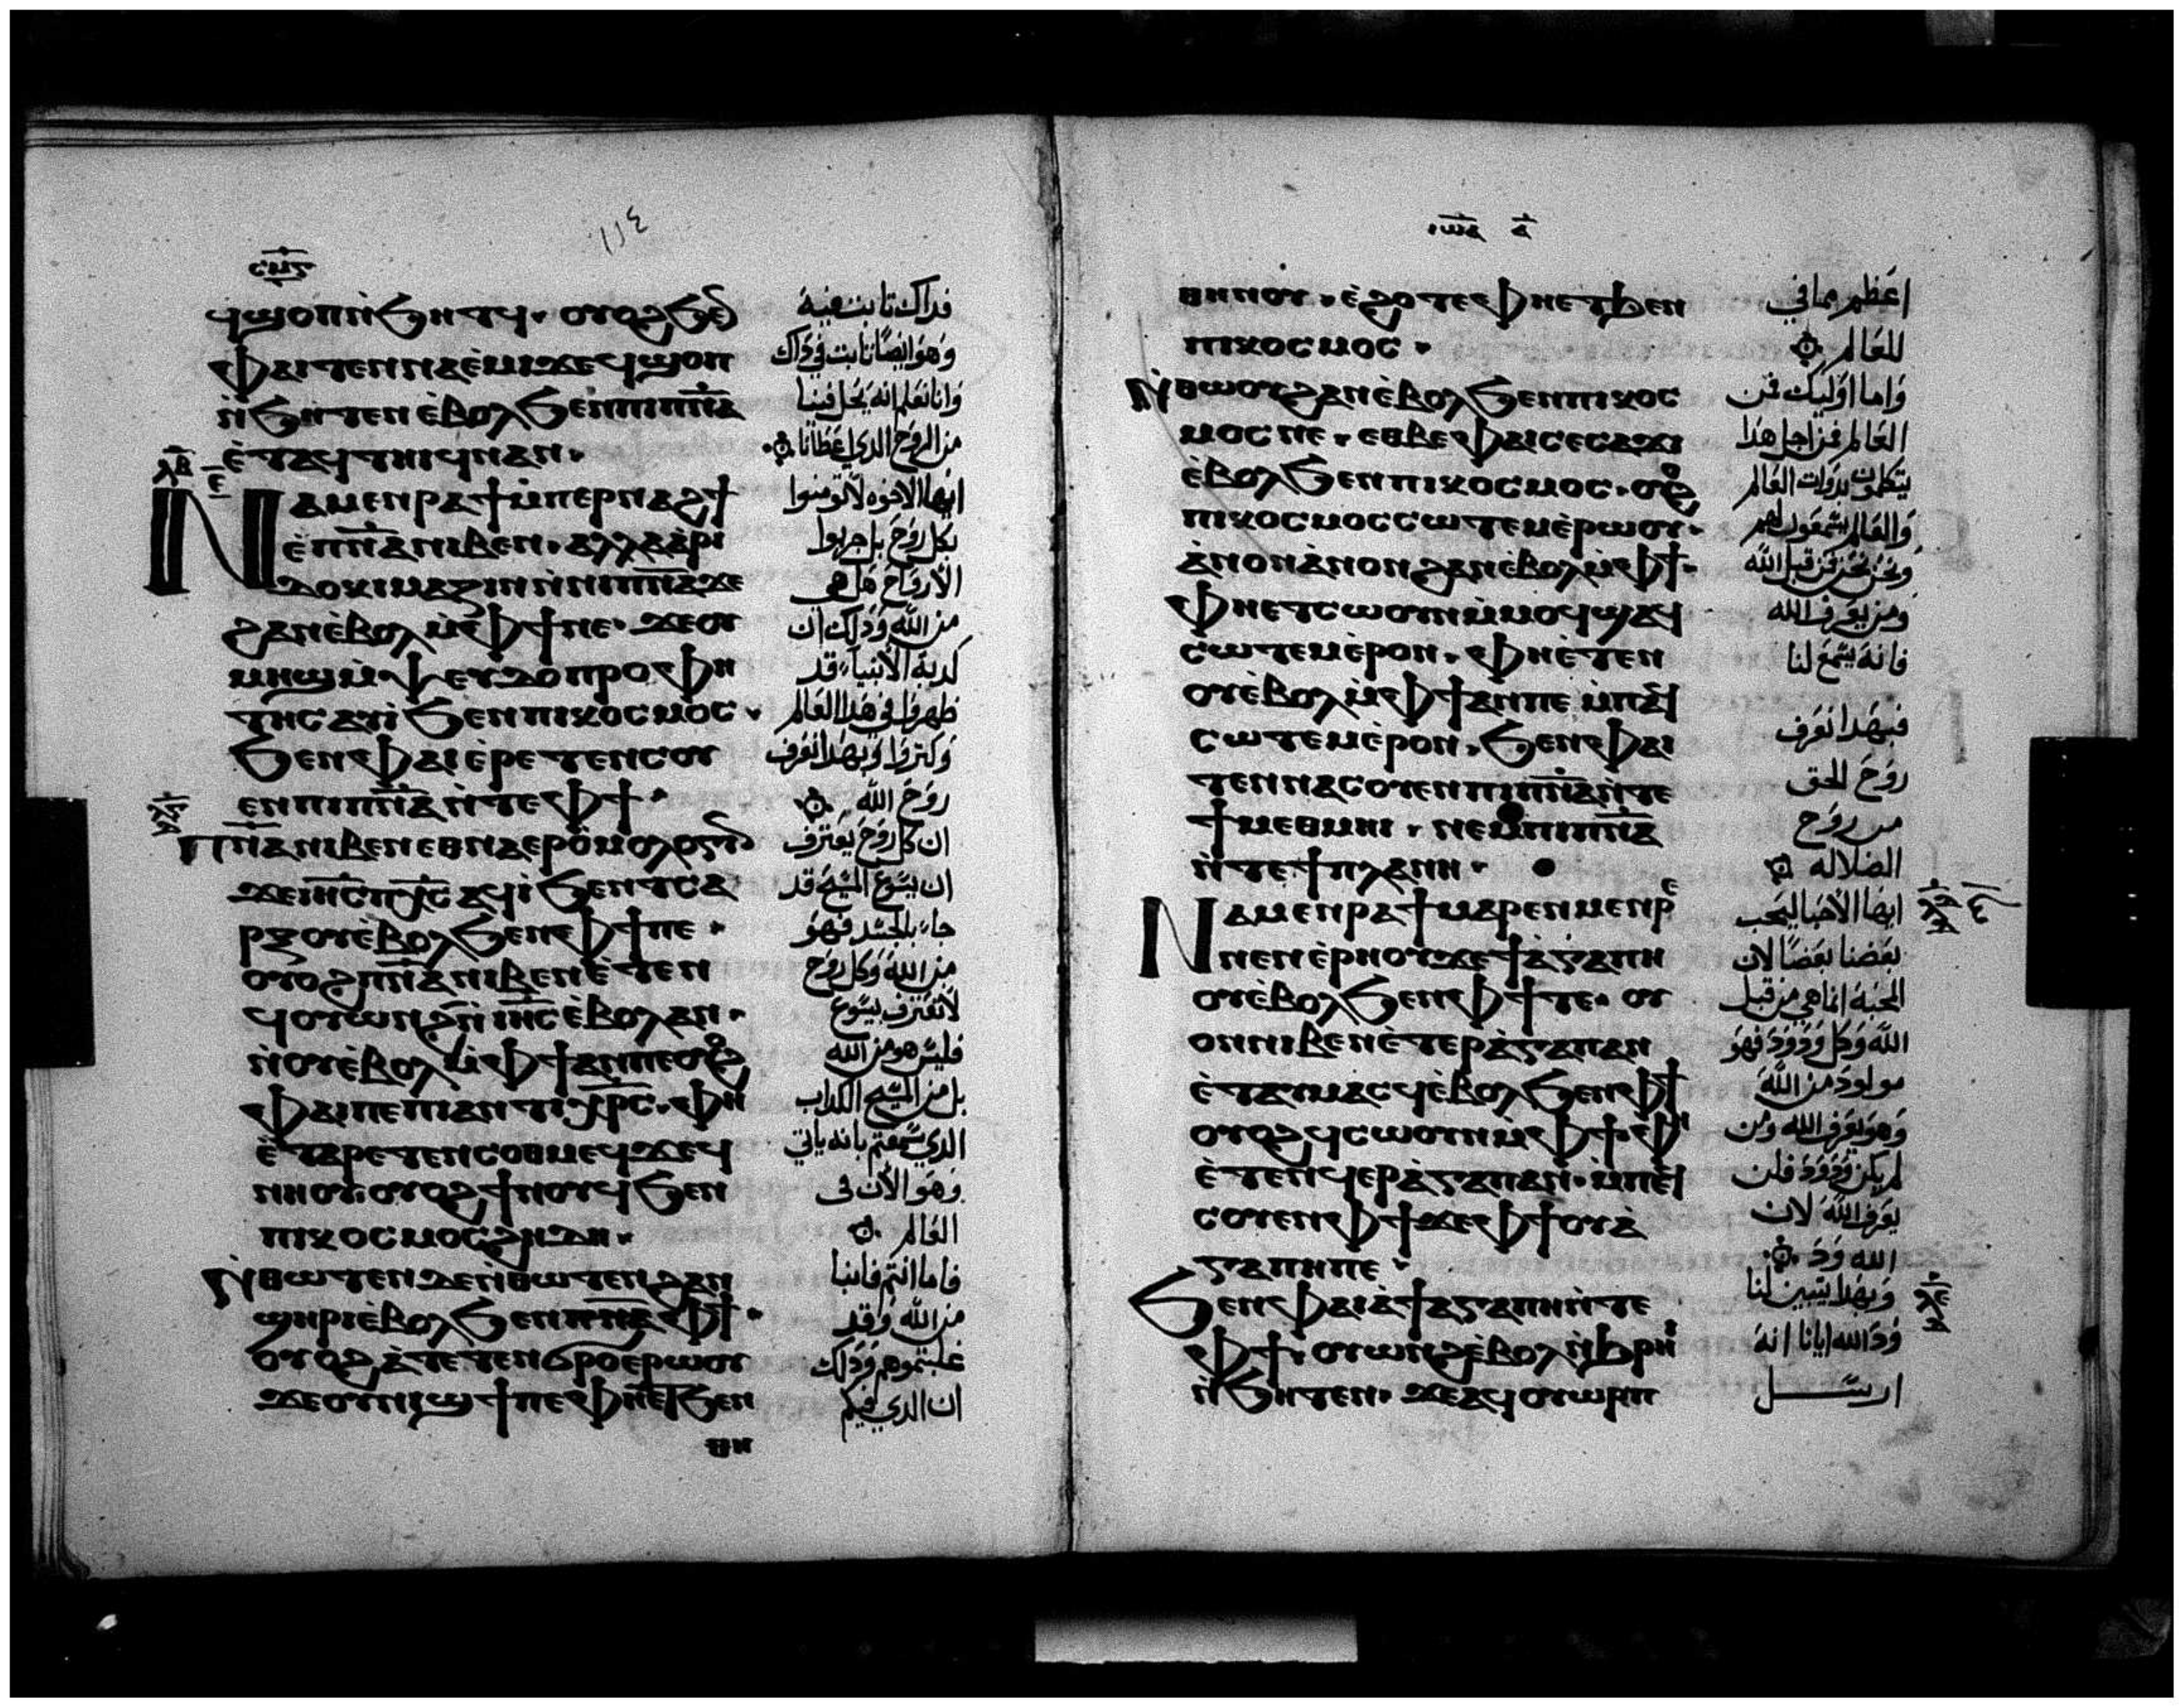 ϥϣⲟⲡ ⲛ̀ϧⲏⲧϥ· ⲟⲩⲟϩ ϧⲉⲛ
ⲫⲁⲓ ⲧⲉⲛⲛⲁⲉ̀ⲙⲓ ϫⲉ ϥϣⲟⲡ
ⲛ̀ϧⲏⲧⲉⲛ ⲉ̀ⲃⲟⲗ ϧⲉⲛ ⲡⲓⲡⲛ̅ⲁ̅
ⲉ̀ⲧⲁϥⲧⲏⲓϥ ⲛⲁⲛ·
ⲛⲁⲙⲉⲛⲣⲁϯ ⲙ̀ⲡⲉⲣⲛⲁϩϯ
ⲉ̀ⲡⲛ̅ⲁ̅ ⲛⲓⲃⲉⲛ· ⲁⲗⲗⲁ ⲁ̀ⲣⲓ
ⲇⲟⲕⲓⲙⲁⲍⲓⲛ ⲛ̀ⲛⲓⲡⲛ̅ⲁ̅ ϫⲉ
ϩⲁⲛⲉ̀ⲃⲟⲗ ⲙ̀ⲫϯ ⲛⲉ· ϫⲉ ⲟⲩ
ⲙⲏϣ ⲙ̀ⲯⲉⲩⲇⲟⲡⲣⲟⲫⲏ
ⲧⲏⲥ ⲁⲩⲓ̀ ϧⲉⲛ ⲡⲓⲕⲟⲥⲙⲟⲥ·
ϧⲉⲛ ⲫⲁⲓ ⲉ̀ⲣⲉⲧⲉⲛⲥⲟⲩ
ⲉⲛ ⲡⲓⲡⲛ̅ⲁ̅ ⲛ̀ⲧⲉ ⲫϯ·
ⲡⲛ̅ⲁ̅ ⲛⲓⲃⲉⲛ ⲉⲑⲛⲁⲉⲣⲟ̀ⲙⲟⲗⲟⲅⲓⲛ
ϫⲉ ⲓⲏ̅ⲥ̅ ⲡⲭ̅ⲥ̅ ⲁϥⲓ̀ ϧⲉⲛ ⲧⲥⲁ
ⲣⲝ ⲟⲩⲉ̀ⲃⲟⲗ ϧⲉⲛ ⲫϯ ⲡⲉ·
ⲟⲩⲟϩ ⲡⲛ̅ⲁ̅ ⲛⲓⲃⲉⲛ ⲉ̀ⲧⲉⲛ
ϥⲟⲩⲱⲛϩ ⲛ̀ⲓⲏ̅ⲥ̅ ⲉ̀ⲃⲟⲗ ⲁⲛ·
ⲛ̀ⲟⲩⲉ̀ⲃⲟⲗ ⲙ̀ⲫϯ ⲁⲛ ⲡⲉ ⲟⲩⲟϩ
ⲫⲁⲓ ⲡⲉ ⲡⲓⲁⲛⲧⲓⲭ̅ⲣ̅ⲥ̅· ⲫⲏ
ⲉ̀ⲧⲁⲣⲉⲧⲉⲛⲥⲟⲑⲙⲉϥ ϫⲉ ϥ
ⲛⲏⲟⲩ ⲟⲩⲟϩ ϯⲛⲟⲩ ϥ ϧⲉⲛ
ⲡⲓⲕⲟⲥⲙⲟⲥ ϩⲏⲇⲏ·
ⲛ̀ⲑⲱⲧⲉⲛ ϫⲉ ⲛ̀ⲑⲱⲧⲉⲛ ϩⲁⲛ
ϣⲏⲣⲓ ⲉ̀ⲃⲟⲗ ϧⲉⲛ ⲫϯ·
ⲟⲩⲟϩ ⲁ̀ⲧⲉⲧⲉⲛϭⲣⲟ ⲉⲣⲱⲟⲩ
ϫⲉ ⲟⲩⲛⲓϣϯ ⲡⲉ ⲫⲏⲉⲧϧⲉⲛ
ⲑⲏ
فداك تابت فيه
وهو ايضا تابت في داك
وانا نعلم انه يحل فينا
من الروح الدي اعطانا
ايها الاخوه لا تومنوا
بكل روح بل جربوا
الارواح هل هي
من الله ودلك ان
كدبة الانبياء قد
ظهروا في هدا العالم
وكتروا وبهدا نعرف
روح الله
ان كل روح يعترف
ان يسوع المسيح قد
جاء بالجسد فهو
من الله وكل روح
لا تعترف بيسوع
فليس هو من الله
بل من المسيح الكداب
الدي سمعتم بانه ياتي
وهو الان في
العالم
فاما انتم فابنا
من الله وقد
غلبتموهم ودلك
ان الدي فيكم
ⲓⲱⲁ ⲁ
ⲑⲏⲛⲟⲩ· ⲉ̀ϩⲟⲧⲉ ⲫⲏⲉⲧϧⲉⲛ
ⲡⲓⲕⲟⲥⲙⲟⲥ·
ⲛ̀ⲑⲱⲟⲩ ϩⲁⲛⲉ̀ⲃⲟⲗ ϧⲉⲛ ⲡⲓⲕⲟⲥ
ⲙⲟⲥ ⲛⲉ· ⲉⲑⲃⲉ ⲫⲁⲓ ⲥⲉⲥⲁϫⲓ
ⲉ̀ⲃⲟⲗ ϧⲉⲛ ⲡⲓⲕⲟⲥⲙⲟⲥ· ⲟⲩⲟϩ
ⲡⲓⲕⲟⲥⲙⲟⲥ ⲥⲱⲧⲉⲙ ⲉ̀ⲣⲱⲟⲩ·
ⲁ̀ⲛⲟⲛ ⲁ̀ⲛⲟⲛ ϩⲁⲛⲉ̀ⲃⲟⲗ ⲙ̀ⲫϯ·
ⲫⲏⲉⲧⲥⲱⲟⲩⲛ ⲙ̀ⲙⲟϥ ϣⲁϥ
ⲥⲱⲧⲉⲙ ⲉ̀ⲣⲟⲛ· ⲫⲏ ⲉ̀ⲧⲉⲛ
ⲟⲩⲉ̀ⲃⲟⲗ ⲙ̀ⲫϯ ⲁⲛ ⲡⲉ ⲙ̀ⲡⲁϥ
ⲥⲱⲧⲉⲙ ⲉ̀ⲣⲟⲛ· ϧⲉⲛ ⲫⲁⲓ
ⲧⲉⲛⲛⲁⲥⲟⲩⲉⲛ ⲡⲓⲡⲛ̅ⲁ̅ ⲛ̀ⲧⲉ
ϯⲙⲉⲑⲙⲏⲓ· ⲛⲉⲙ ⲡⲓⲡⲛ̅ⲁ̅
ⲛ̀ⲧⲉ ϯⲡⲗⲁⲛⲏ·
ⲛⲁⲙⲉⲛⲣⲁϯ ⲙⲁⲣⲉⲛⲙⲉⲛⲣⲉ
ⲛⲉⲛⲉ̀ⲣⲏⲟⲩ ϫⲉ ϯⲁ̀ⲅⲁⲡⲏ
ⲟⲩⲉ̀ⲃⲟⲗ ϧⲉⲛ ⲫϯ ⲧⲉ· ⲟⲩ
ⲟⲛ ⲛⲓⲃⲉⲛ ⲉ̀ⲧⲉⲣⲁ̀ⲅⲁⲡⲁⲛ
ⲉ̀ⲧⲁⲩⲙⲁⲥϥ ⲉ̀ⲃⲟⲗ ϧⲉⲛ ⲫϯ
ⲟⲩⲟϩ ϥⲥⲱⲟⲩⲛ ⲙ̀ⲫϯ· ⲫⲏ
ⲉ̀ⲧⲉⲛϥⲉⲣⲁ̀ⲅⲁⲡⲁⲛ· ⲙ̀ⲡⲉϥ
ⲥⲟⲩⲉⲛ ⲫϯ ϫⲉ ⲫϯ ⲟⲩⲁ̀
ⲅⲁⲡⲏ ⲡⲉ·
ϧⲉⲛ ⲫⲁⲓ ⲁ̀ ϯⲁⲅⲁⲡⲏ ⲛ̀ⲧⲉ
ⲫϯ· ⲟⲩⲱⲛϩ ⲉ̀ⲃⲟⲗ ⲛ̀ϧⲣⲏⲓ
ⲛ̀ϧⲏⲧⲉⲛ· ϫⲉ ⲁϥⲟⲩⲱⲣⲡ
اعظم مما في
للعالم
واما اوليك فمن
العالم فمن اجل هدا
يتكلمون بدوات العالم
والعالم يسمعون لهم
ونحن نحن من قبل الله
ومن يعرف الله
فانه يسمع لنا
فبهدا نعرف
روح الحق
من روح
الضلاله
ايها الاحبا ليحب
بعضنا بعضا لان
المحبة انما هي من قبل
الله وكل ودود فهو
مولود من الله
وهو يعرف الله ومن
لم يكن ودود فلن
يعرف الله لان
الله ود
وبهدا يتبين لنا
ود الله ايانا انه
ارسل